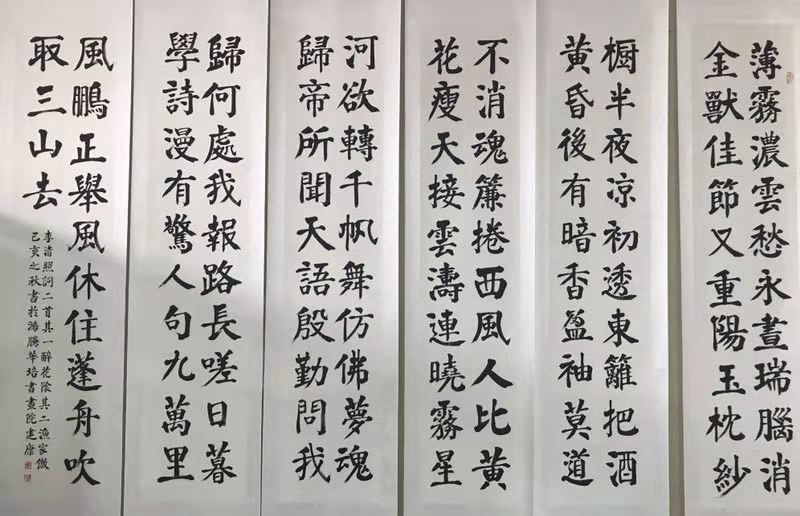 薄霧濃雲愁永晝瑞腦消
金獸佳節又重陽玉枕紗
橱半夜凉初透東籬把酒
黄昏後有暗香盈袖莫道
不消魂簾捲西風人比黄
花瘦天接雲濤連曉霧星
河欲轉千帆舞仿佛夢魂
歸帝所聞天語殷勤問我
歸何處我報路長嗟日暮
學詩漫有驚人句九萬里
風鵬正舉風休住蓬舟吹
取三山去
李清照詞二首其一醉花陰其二漁家傲
己亥之秋書於騰華培書畫院建康